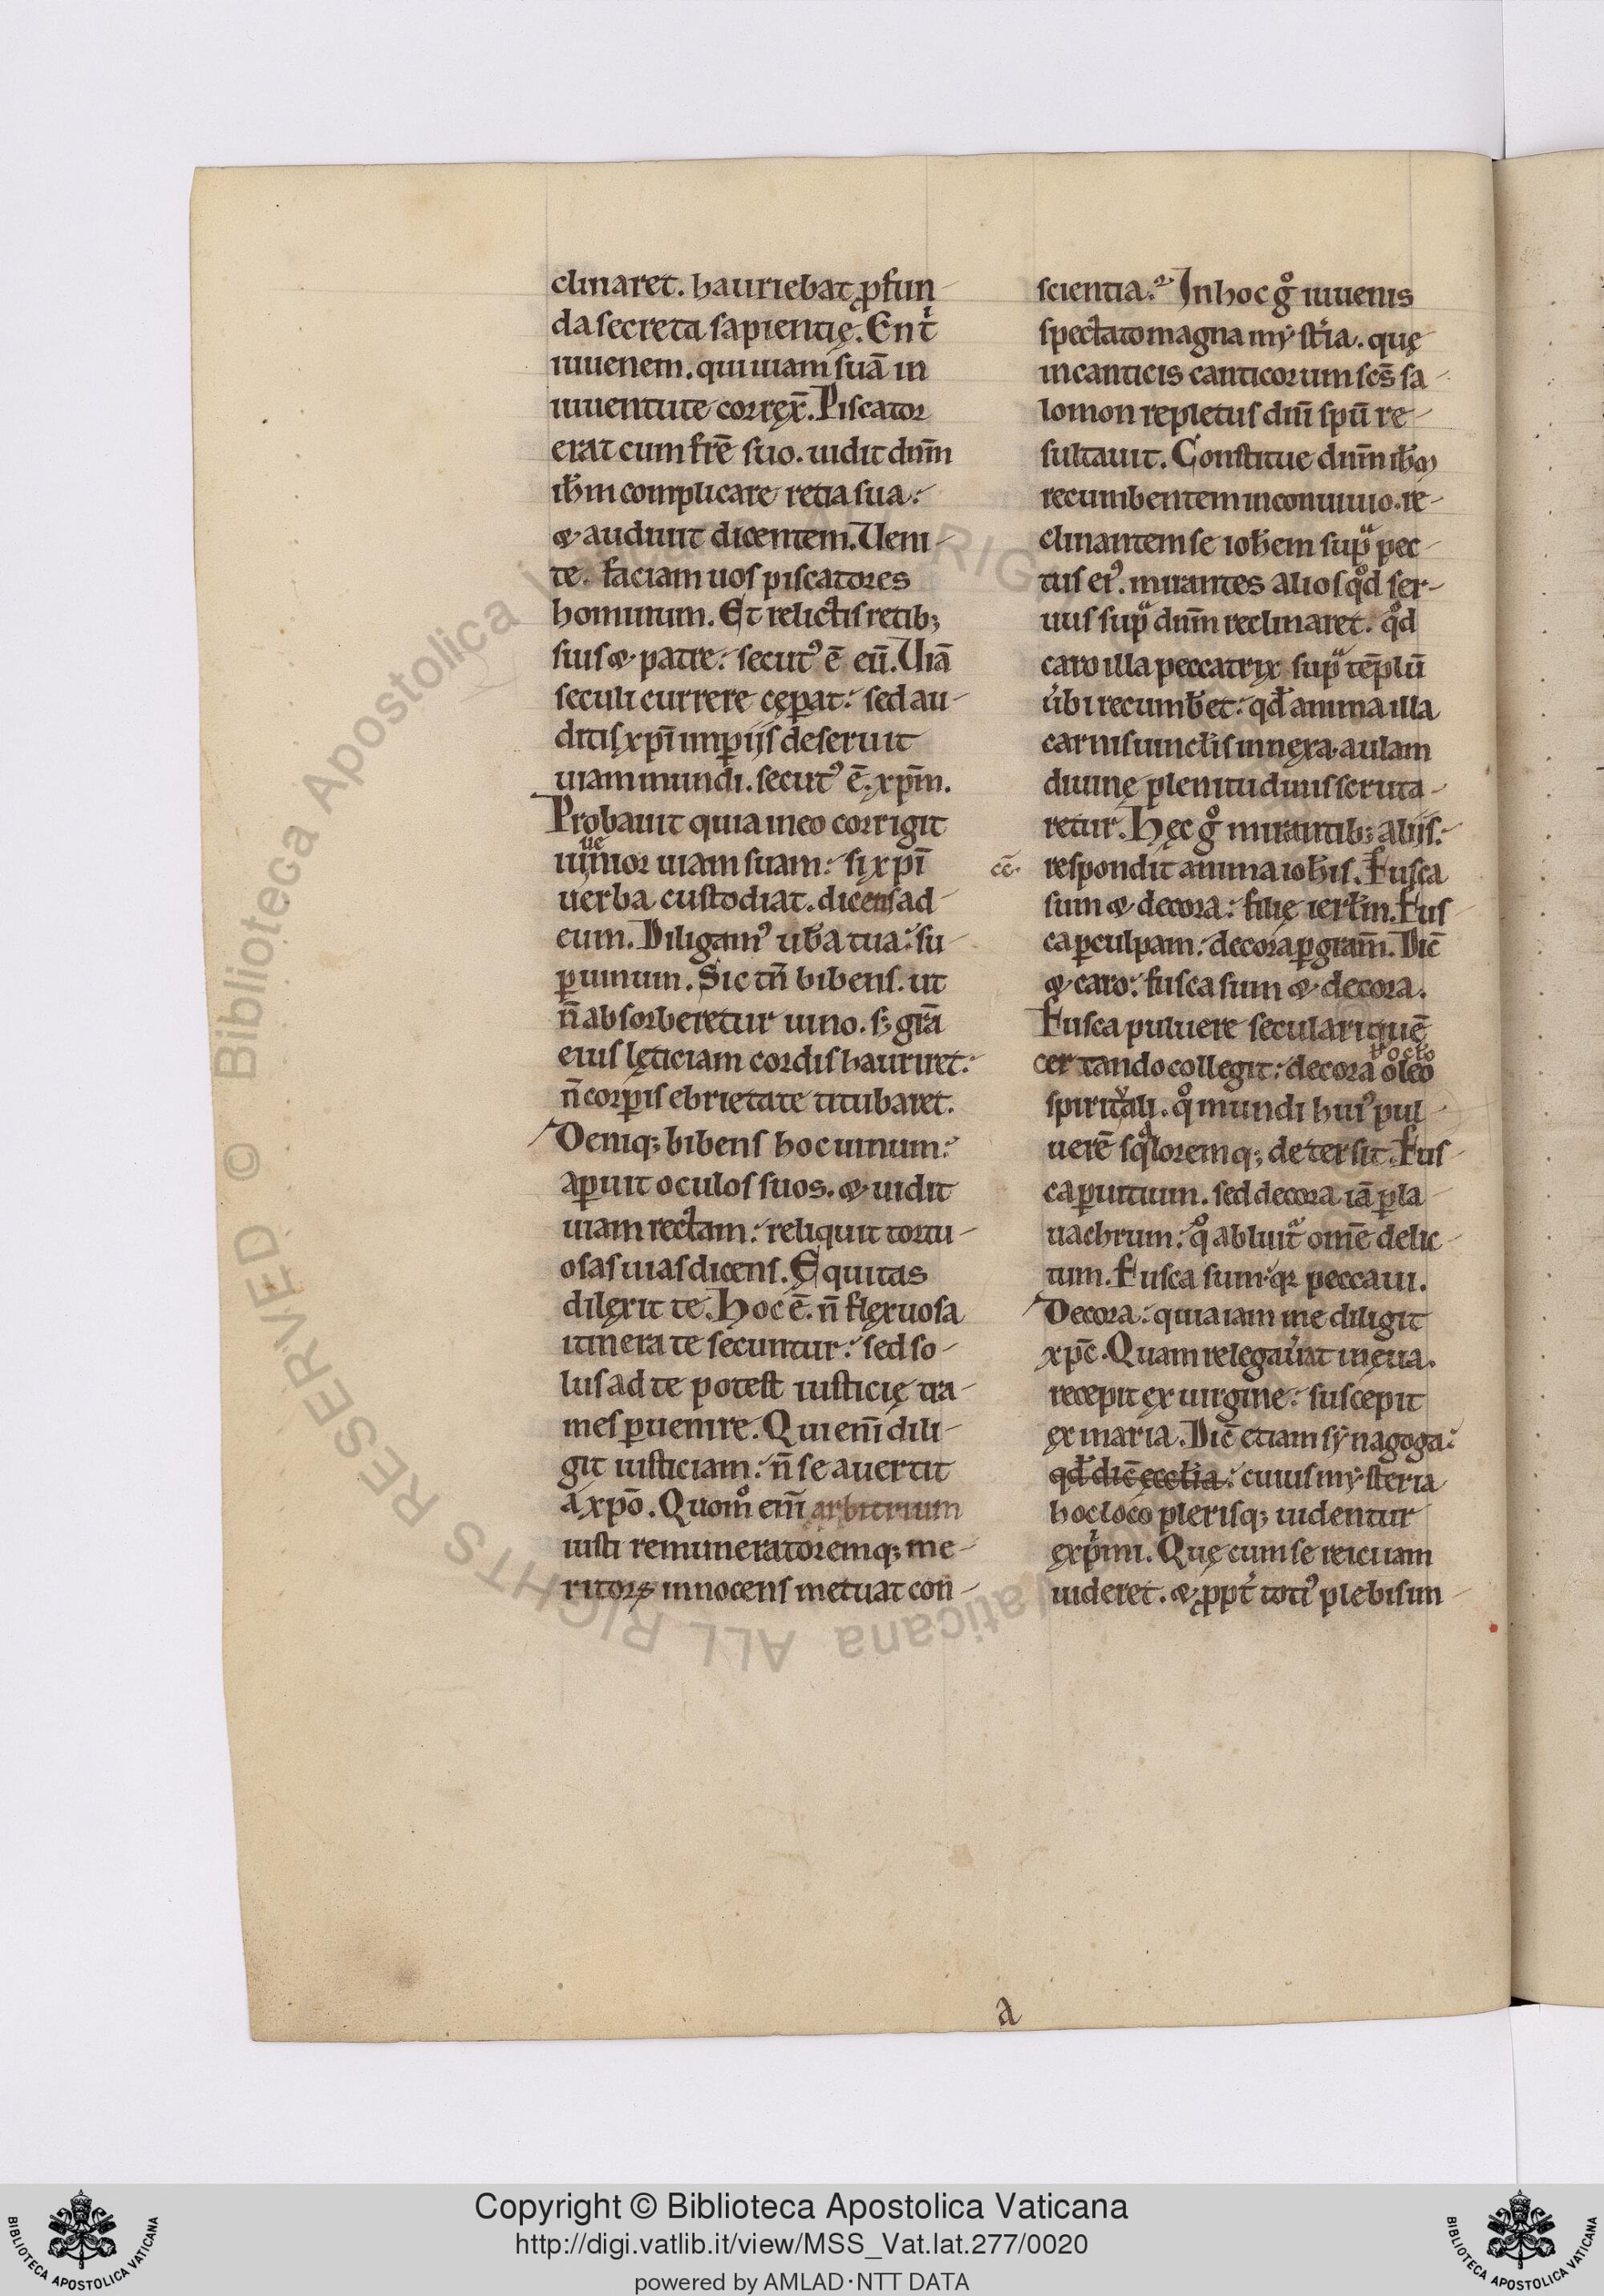 clinaret. hauriebat ꝓfun-
da secreta sapientię. En t᷑
iuuenem. qui uiam suā in
iuuentute correx̄. Piscator
erat cum fr̄e suo. uidit dn̄m
ih̄m complicare retia sua.
& audiuit dicentem. Ueni-
te. faciam uos piscatores
hominum. Et relictis retib;
suis & patre. secut᷒ ē eū. Uiā
seculi currere cęꝑat. sed au-
ditis xp̄i imꝑijs deseruit
uiam mundi. secut᷒ ē xp̄m.
Probauit quia in eo corrigit
ue
iunior uiam suam. si xp̄i
uerba custodiat. dicens ad
eum. Diligam᷒ ub̄a tua. su-
ꝑ uinum. Sic tn̄ bibens. ut
n̄ absorberetur uino. s; gr̄a
eius lęticiam cordis hauriret.
n̄ corꝑis ebrietate titubaret.
Deniq; bibens hoc uinum.
aꝑuit oculos suos. & uidit
uiam rectam. reliquit tortu-
osas uias dicens. Equitas
dilęxit te. Hoc ē. n̄ flęxuosa
itinera te secuntur. sed so-
lus ad te potest iusticię tra-
mes ꝑuenire. Qui eni̅ dili-
git iusticiam. n̄ se auertit
a xp̄o. Quom̊ eni̅ arbitrium
iusti remuneratoremq; me-
ritoꝝ innocens metuat con-
scientia. In hoc g̊ iuuenis
spectato magna myst᷑ia. quę
in canticis canticorum sc̄s sa-
lomon repletus diui̅ spū re-
sultauit. Constitue dn̄m ih̄m
recumbentem in conuiuio. re-
clinantem se ioh̄em supᵃ pec-
tus ei᷒. mirantes alios qͦd ser-
uus supᵃ dn̄m reclinaret. qͦd
caro illa peccatrix supᵃ te̅plū
u᷑bi recumb̄et. qd̄ anima illa
carnis uinclis innęxa. aulam
diuinę plenitudinis scruta-
retur. Hęc g̊ mirantib; alijs.
respondit anima ioh̄is. Fusca
sum & decora. filię ierl̄m. Fus-
ca ꝑ culpam. decora ꝑ gram̄. Dic̄
& caro. fusca sum & decora.
Fusca puluere seculari quē
certando collegit. decora oleo
spirit᷑ali. qͦ mundi hui᷒ pul-
uerē sqᵃloremq; detersit. Fus-
ca ꝑ uitium. sed decora iā ꝑ la-
uachrum. qͦ abluit᷑ om̄e delic-
tum. Fusca sum. qꝛ peccaui.
Decora. quia iam me diligit
xp̄c. Quam relegau᷑at in ęua.
recepit ęx uirgine. suscepit
ęx maria. Dic̄ etiam synagoga.
qd̄ dic̄ eccl̄ia. cuius mysteria
hoc loco plerisq; uidentur
ęxp᷑mi. Quę cum se reiciiam
uideret. & ꝓpt᷑ toti᷒ plebis in-
a
Copyright © Biblioteca Apostolica Vaticana
http://digi.vatlib.it/view/MSS_Vat.lat.277/0020
powered by AMLAD·NTT DATA
BIBLIOTECA APOSTOLICA VATICANA
BIBLIOTECA APOSTOLICA VATICANA